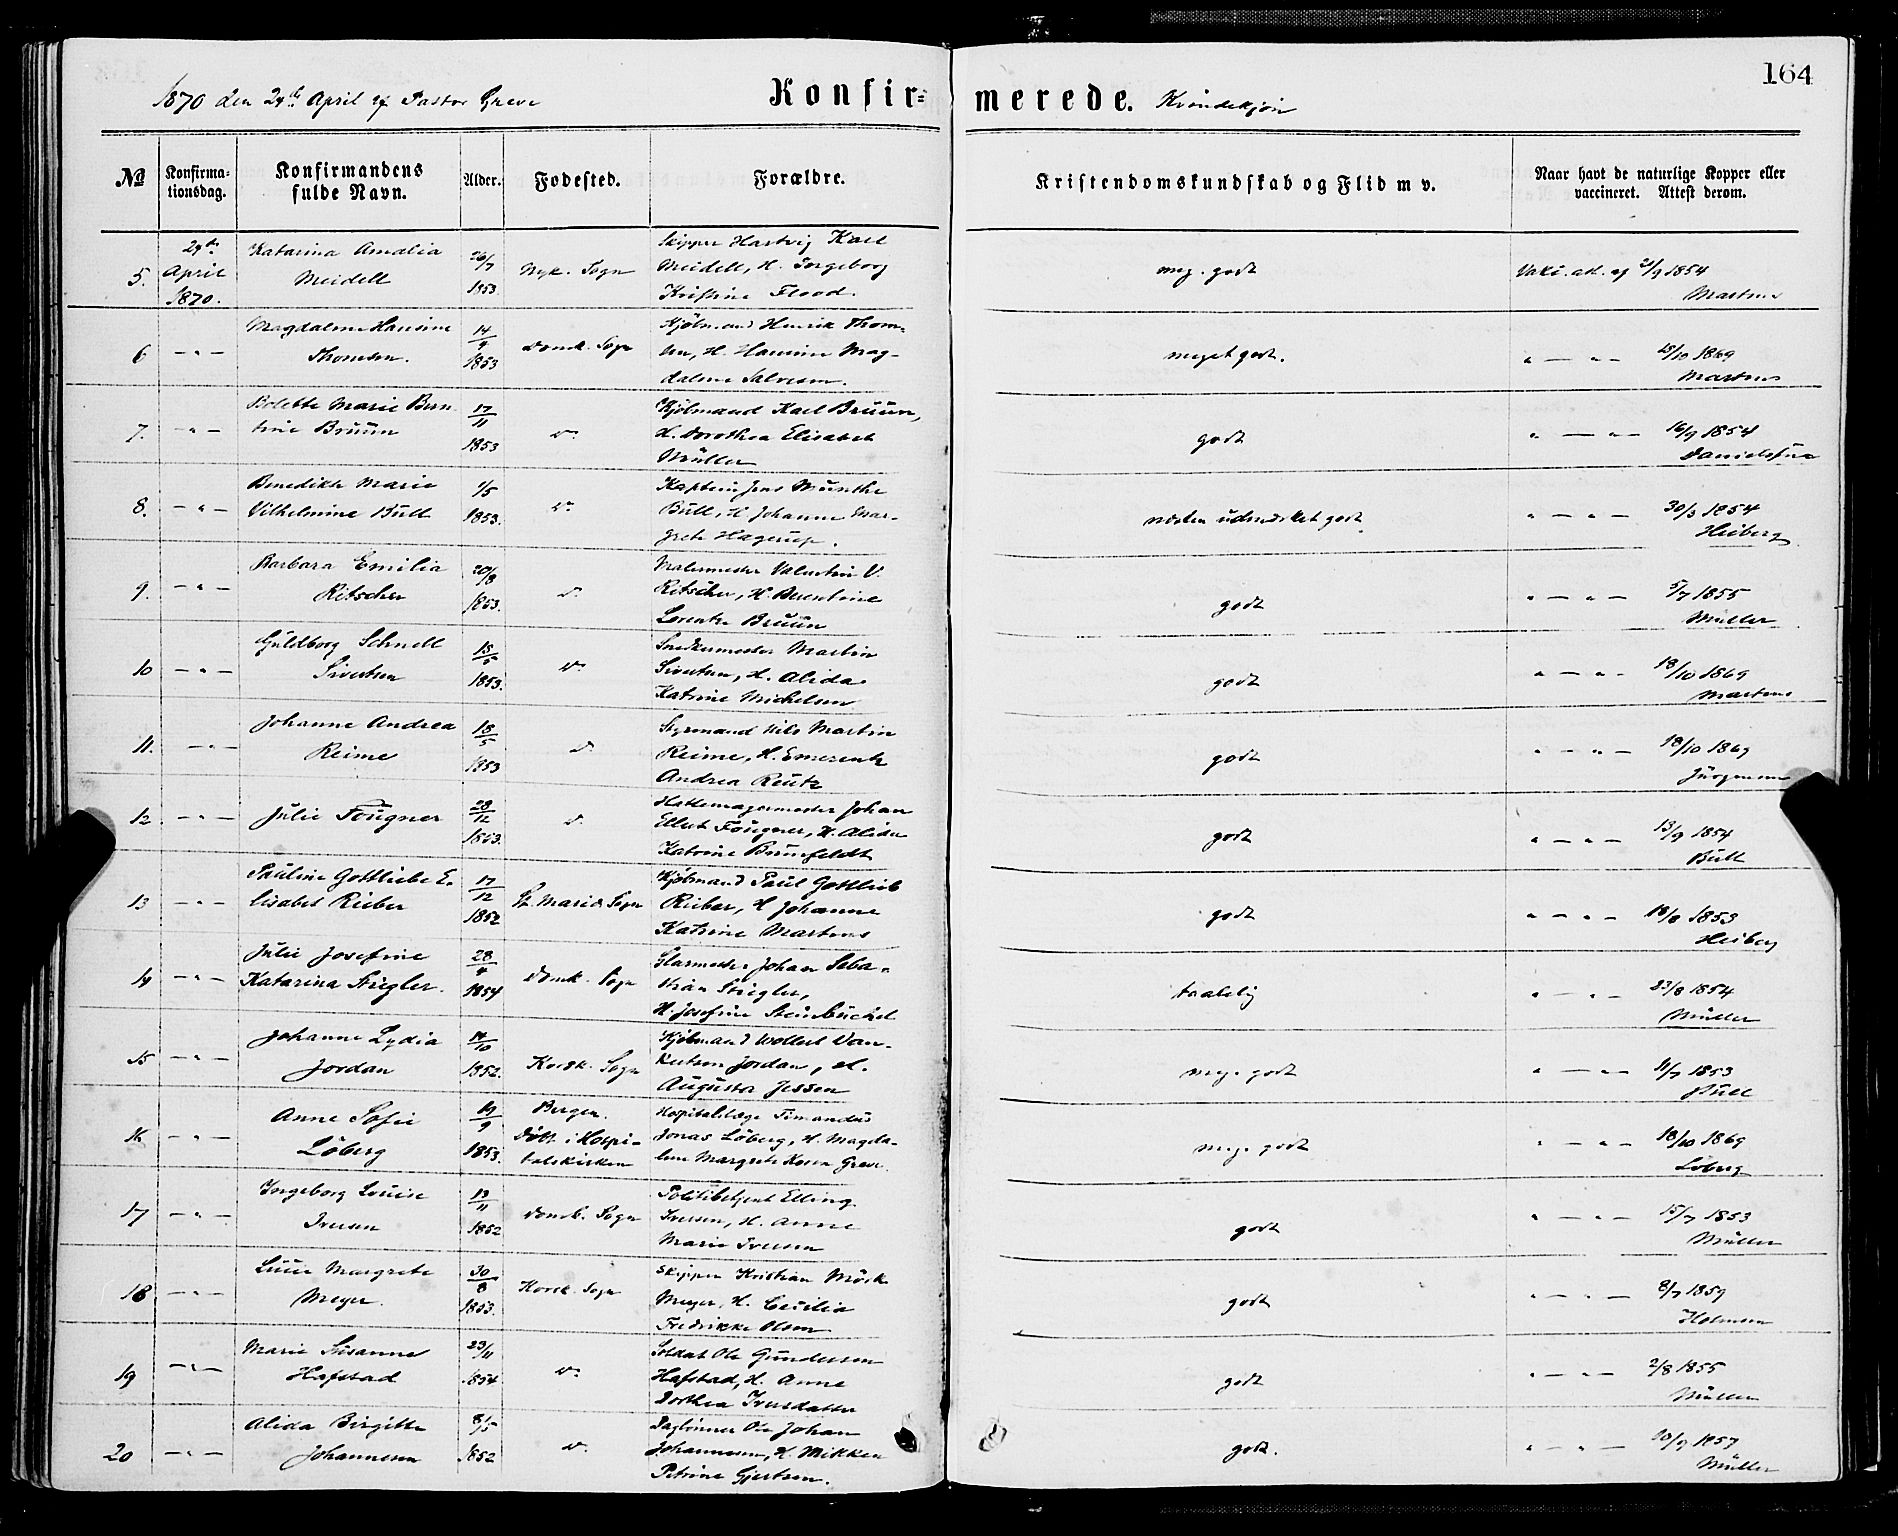 164
1870 den 24de April af Pastor Greve
Konfirmerede. Kvindekjön
No
Konfirma-
tionsdag.
Konfirmandens
fulde Navn.
Alder.
Fødested.
Forældre.
Kristendomskundskab og Flid m v.
Naar havt de naturlige Kopper eller
vaccineret. Attest derom.
5. 24de April 1870. Katarina Amalia Meidell 26/7 1853. Nyk. Sogn
Skipper Hartvig Karl
Meidell, H. Ingeborg
Kristine Flood.
meg. godt
Vakc. att. af 21/9 1854
Martens
6 - " - Magdalene Hansine Thomsen. 14/4 1853 Domk. Sogn
Kjöbmand Henrik Thom-
sen, H. Hansine Mag-
dalene Salvesen.
meget godt.
" - " - 18/10 1869
Martens
7. - " - Bolette Marie Bern tine Brüün 17/11 1853 do
Kjöbmand Karl Brüün,
H. Dorothea Elisabet
Müller
godt
" - " - 16/9 1854
Danielssen
8. - " - Benedikte Marie Vilhelmine Büll 1/5 1853. do
Kaptein Jens Münthe
Büll, H. Johanne Mar-
grete Hagerup.
næsten udmærket godt
" - " - 30/3 1854
Heiberg
9. - " - Barbara Emilia Ritscher 20/8 1853. do
Malermester Valentin V.
Ritscher, H. Berentine
Lorentze Brüün
godt
" - " - 5/7 1855
Müller
10 - " - Güldborg Schnell Sivertsen 15/5 1853. do
Snedkermester Martin
Sivertsen, H. Alida
Katrine Michelsen
godt
" - " - 18/10 1869
Martens
11. - " - Johanne Andrea Reime 18/5 1853 do
Styrmand Nils Martin
Reime, H. Emerentze
Andrea Reütz
godt
" - " - 18/10 1869
Jürgensen
12. - " - Jülie Foügner 28/12 1853. do
Hattemagermester Johan
Ellert Foügner, H. Alida
Katrine Brünfeldt
godt
" - " - 13/9 1854
Büll
13 - " - Paüline Gottliebe E- lisabet Rieber 17/12 1852 St. Mariæ Sogn
Kjöbmand Paül Gottlieb
Rieber, H Johanne
Katrine Martens
godt
" - " - 18/8 1853
Heiberg
14 - " - Jülie Josefine Katarina Stiegler. 28/4 1854 Domk. Sogn
Glarmester Johan Seba-
stian Stiegler,
H. Josefine Steinbüchel
taalelig
" - " - 23/8 1854
Müller
15 - " - Johanne Lydia Jordan 14/10 1852. Korsk. Sogn
Kjöbmand Wollert Dan-
kertsen Jordan, H.
Augusta Jessen
meg. godt
" - " - 11/7 1853
Büll
16 - " - Anne Sofie Löberg 19/9 1853. Bergen. Döbt i Hospi- talskirken
Hospitalslæge Timandus
Jonas Löberg, H. Magda-
lene Margrete Greve
meg. godt
" - " - 18/10 1869
Löberg
17 - " - Ingeborg Louise Iversen 13/11 1852 Domk. Sogn
Politibetjent Elling
Iversen, H. Anne
Marie Iversen
godt
" - " - 15/7 1853
Müller
18 - " - Margrete Meyer. 30/8 1853. Korsk. Sogn
Skipper Kristian Mörk
Meyer, H. Cecilia
Fredrikke Olsen
godt
" - " - 8/7 1859
Holmsen
19 - " - Marie Süsanne Hafstad 23/11 1854 do
Soldat Ole Gündersen
Hafstad, H. Anne
Dorthea Iversdatter
godt
" - " - 2/8 1855
Müller
20 - " - Alida Birgitte Johannesen 8/5 1852 do
Daglönner Ole Johan
Johannesen, H. Mikken
Petrine Gjertsen.
godt.
" - " - 10/9 1857
Müller